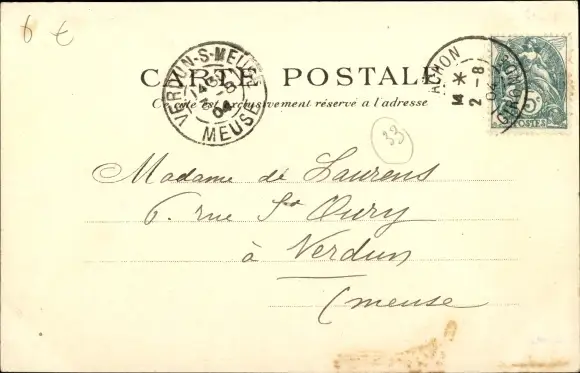 6 €
CARTE POSTALE
Ce côté est exclusivement réservé a l'adresse
VERDUN-S-MEUSE
MEUSE
04
2 - 8
GIRONDE
5c
POSTES
33
Madame de Laurens
6. rue St Oury
à Verdun
(meuse